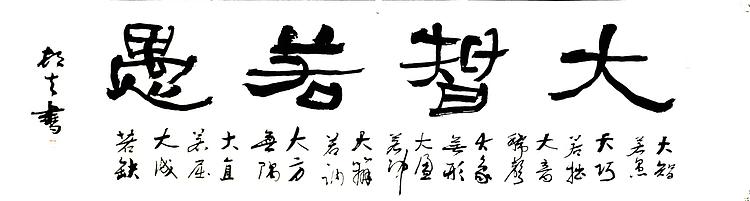 大智若愚
大智
若愚
大巧
若拙
大音
稀聲
大象
無形
大盈
若冲
大辯
若訥
大方
無隅
大直
若屈
大成
若缺
書